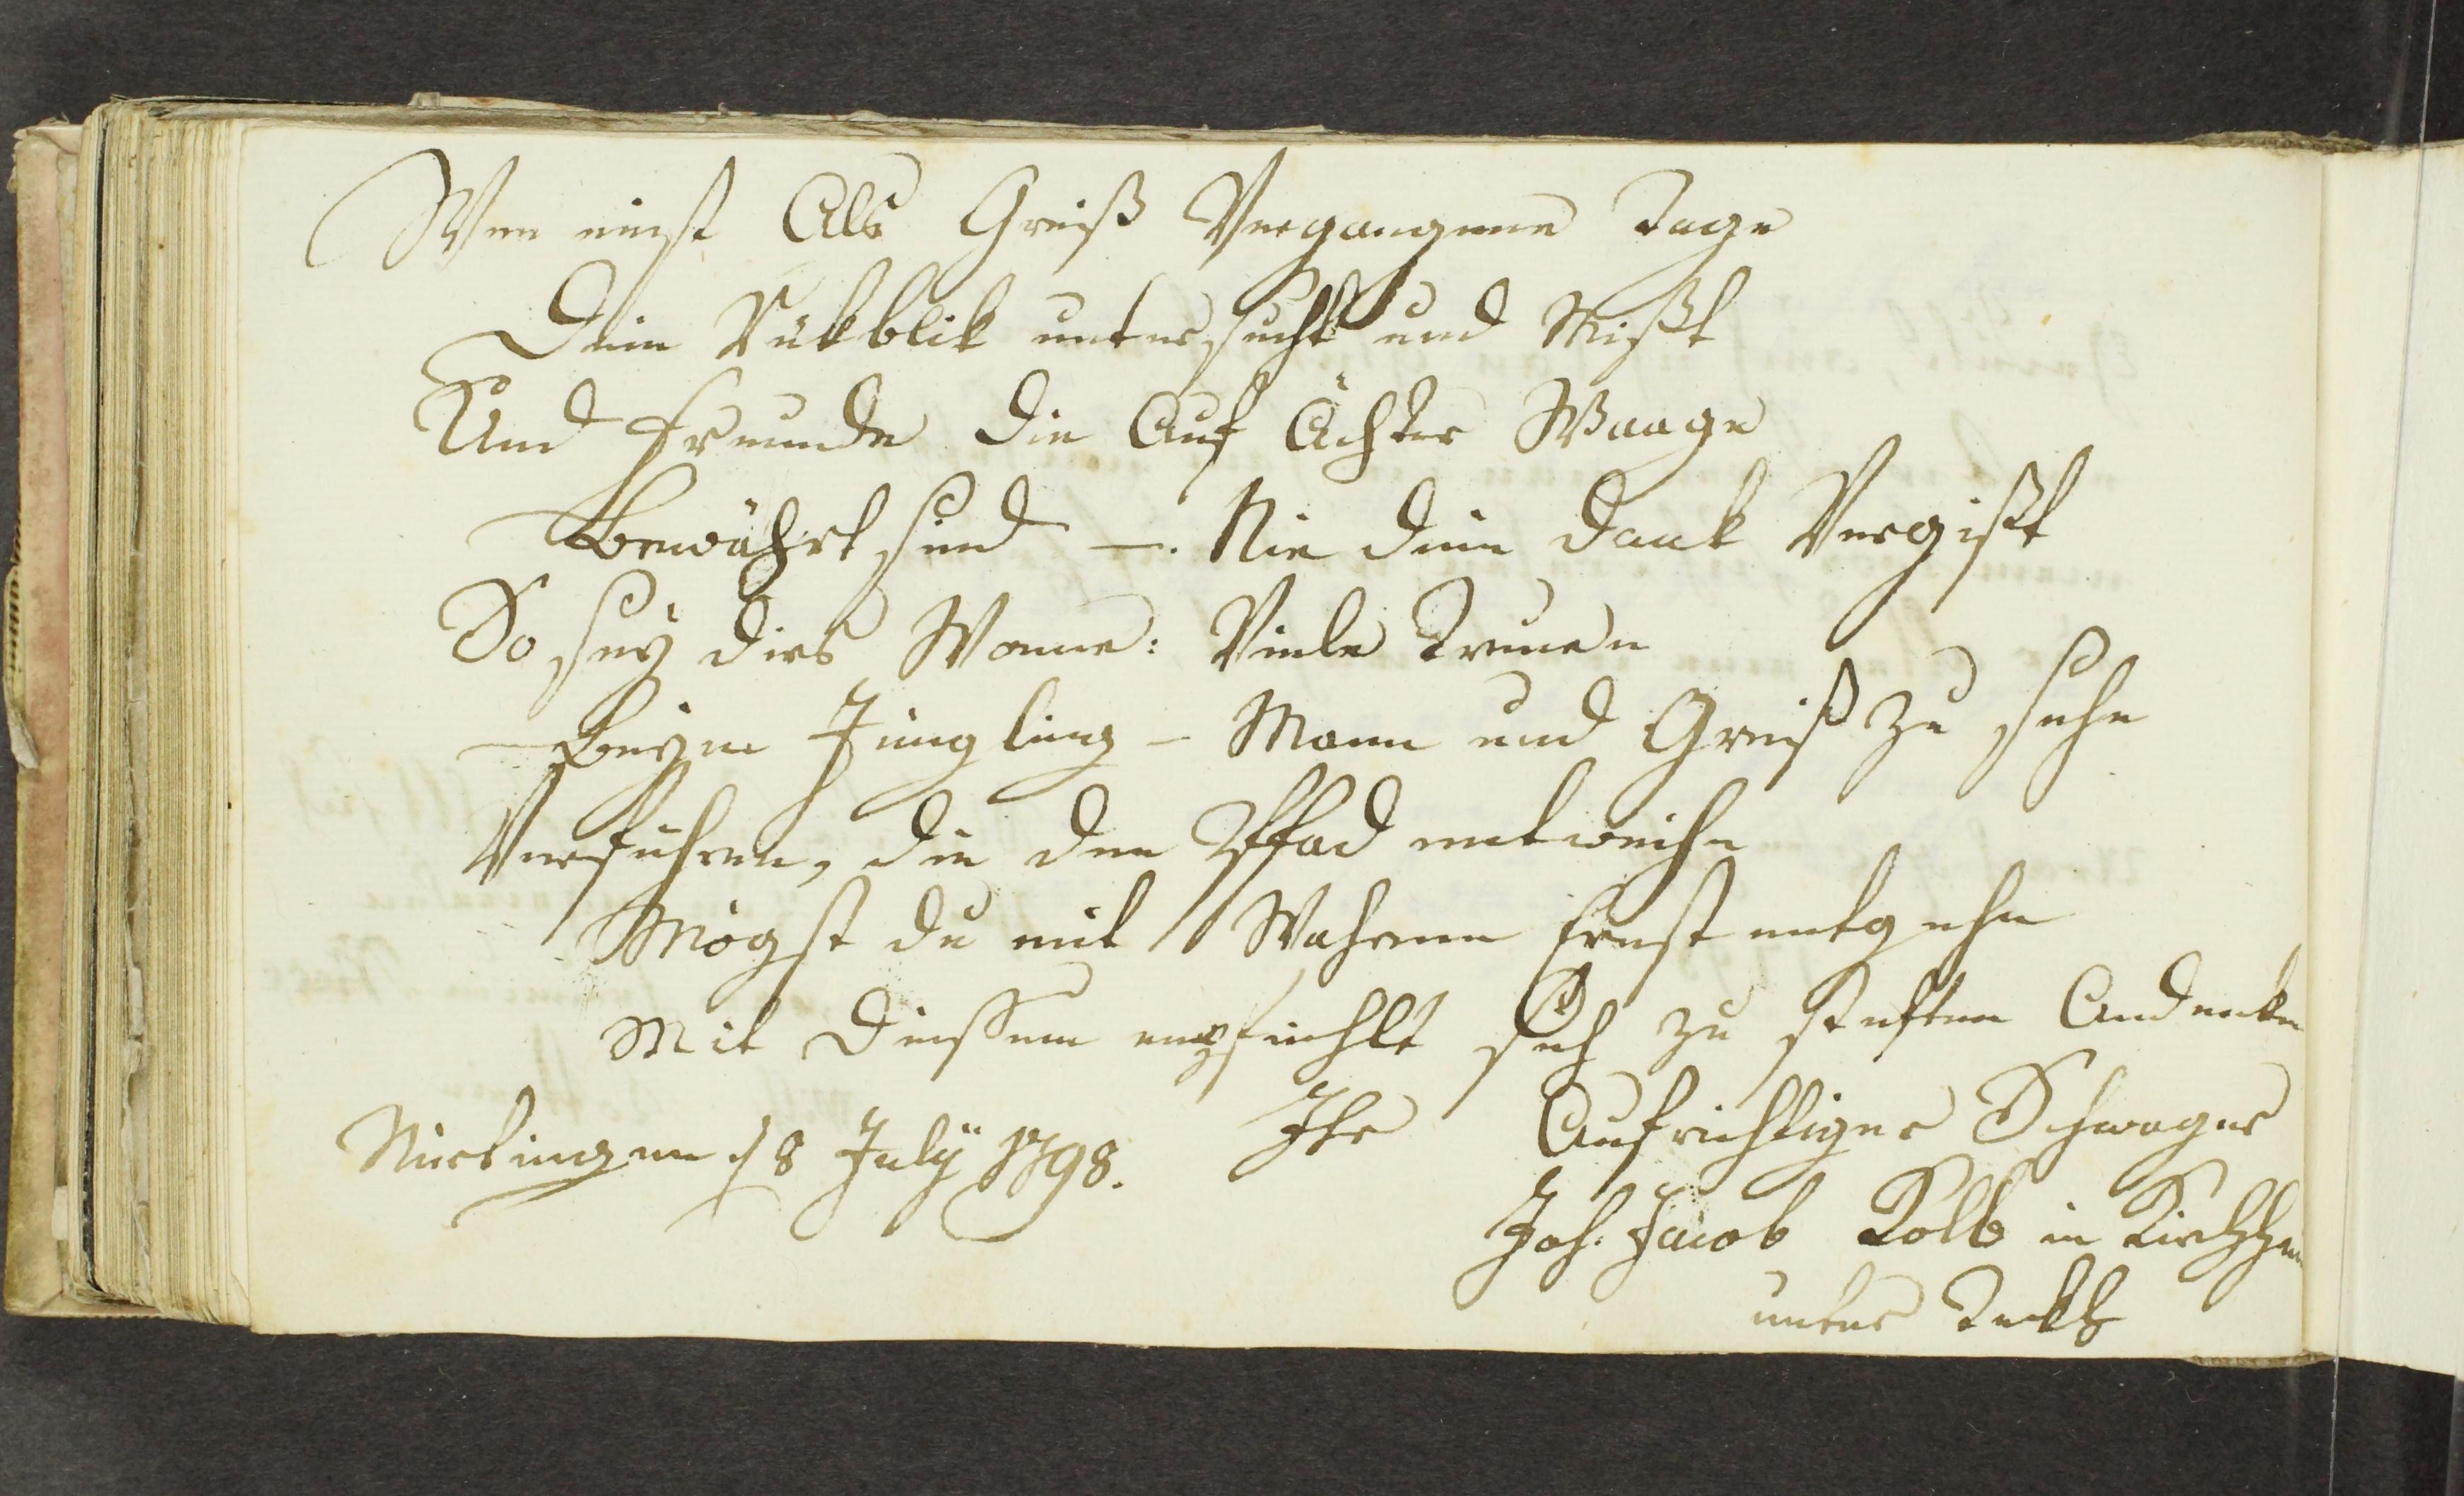 Wen einst Als Greiß Vergangene Tage
Dein Rükblik untersucht und Mißt
Und Freunde die Auf Ächter Waage
Bewährt sind —. Nie dein Dank Vergißt
So sey dirs Wonne: Viele Treuen
Beym Jüngling - Mann und Greiß zu sehn
Verführen, die den Pfad entweihn
Mögst du mit Wahrem Ernst entgehn
Mit Diessem empfiehlt sich zu stetten Andenken
Nürtingen 18 July 1798. Ihr Aufrichtiger Schwager
Joh. Jacob Kolb in Kirchheim
unter Teckh